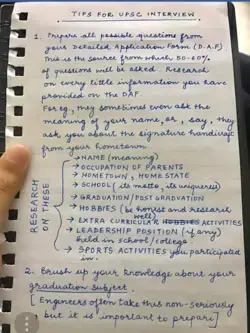 TIPS FOR UPSC INTERVIEW
1. Prepare all possible questions from
your Detailed Application Form (D.A.F).
This is the source from which 50-60%
of questions will be asked. Research
on every little information you have
provided on the DAF.
For eg, they sometimes even ask the
meaning of your name, or, say, they
ask you about the signature handicraft
from your hometown.
RESEARCH ON THESE
→ NAME (meaning)
→ OCCUPATION OF PARENTS
→ HOMETOWN, HOME STATE
→ SCHOOL (its motto, its uniqueness)
→ GRADUATION/POST GRADUATION
→ HOBBIES (be honest and research
well)
→ EXTRA CURRICULAR HOBBIES ACTIVITIES
→ LEADERSHIP POSITION (if any)
held in school/college.
→ SPORTS ACTIVITIES you participated
in.
2. Brush up your knowledge about your
graduation subject.
[Engineers often take this non-seriously
but it is important to prepare]